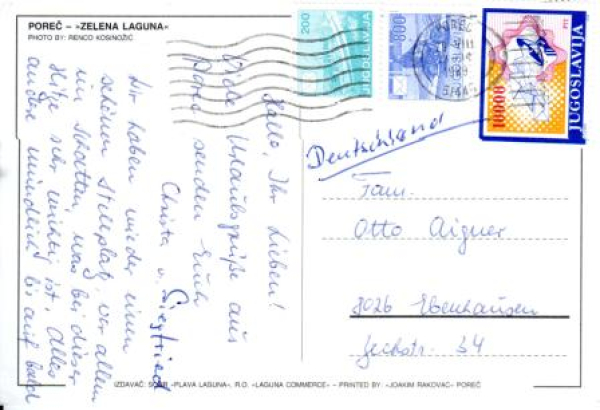 POREČ – »ZELENA LAGUNA«
PHOTO BY: RENCO KOSINOŽIĆ
200
JUGOSLAVIJA
800
JUGOSLAVIJA
10000
JUGOSLAVIJA
PTT
POREČ
1989
Deutschland
Fam.
Otto Aigner
8026 Ebenhausen
34
Hallo, Ihr Lieben!
Liebe Urlaubsgrüße aus
Poreč senden Euch
Christa u. Siegfried
Wir haben wieder einen
schönen Stellplatz, vor allem
im Schatten, was bei dieser
Hitze sehr wichtig ist. Alles
andere mündlich, bis auf bald
IZDAVAČ: SOUR »PLAVA LAGUNA«, R.O. »LAGUNA COMMERCE« – PRINTED BY »JOAKIM RAKOVAC« POREČ